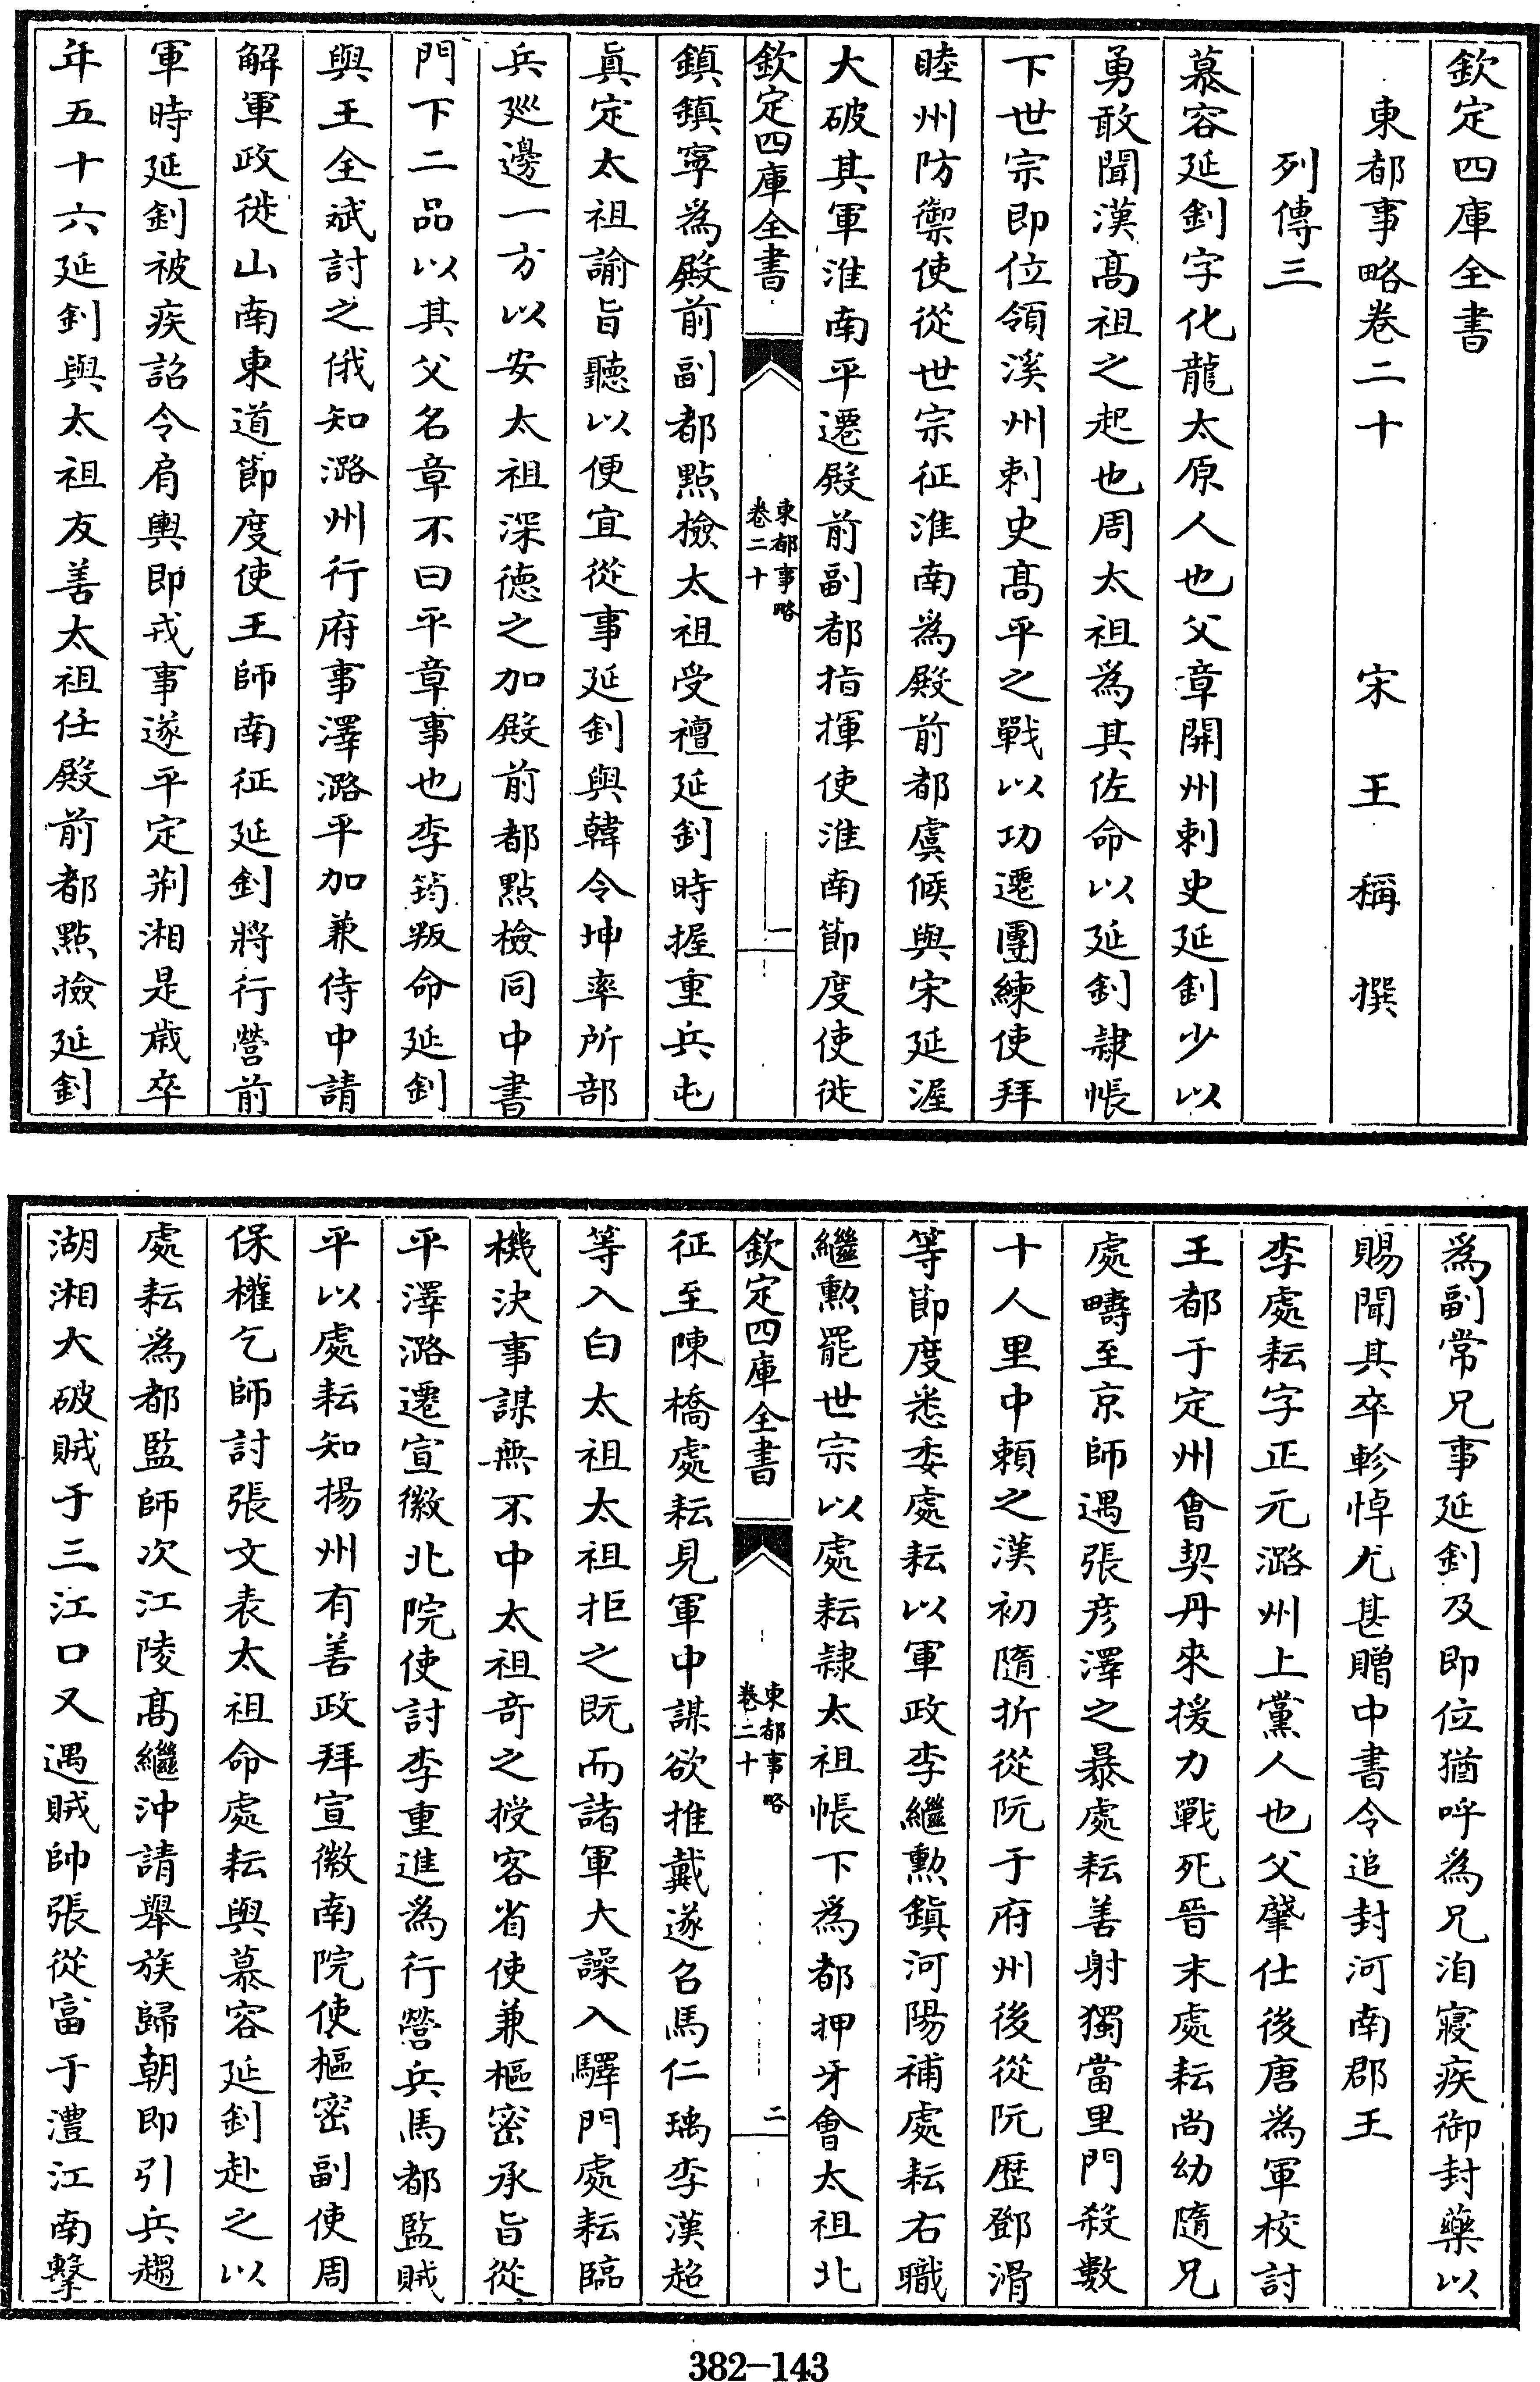 欽定四庫全書
東都事略卷二十　宋　王　稱　撰
列傳三
慕容延釗字化龍太原人也父章開州刺史延釗少以
勇敢聞漢髙祖之起也周太祖為其佐命以延釗隷帳
下世宗即位領溪州刺史髙平之戰以功遷團練使拜
睦州防禦使從世宗征淮南為殿前都虞候與宋延渥
大破其軍淮南平遷殿前副都指揮使淮南節度使徙
欽定四庫全書
東都事略
卷二十
一
鎮鎮寧為殿前副都點檢太祖受禪延釗時握重兵屯
真定太祖諭旨聽以便宜從事延釗與韓令坤率所部
兵廵邊一方以安太祖深德之加殿前都點檢同中書
門下二品以其父名章不曰平章事也李筠叛命延釗
與王全斌討之俄知潞州行府事澤潞平加兼侍中請
解軍政徙山南東道節度使王師南征延釗將行營前
軍時延釗被疾詔令肩輿即戎事遂平定荆湘是歳卒
年五十六延釗與太祖友善太祖任殿前都點撿延釗
為副常兄事延釗及即位猶呼為兄洎寢疾御封藥以
賜聞其卒軫悼尤甚贈中書令追封河南郡王
李處耘字正元潞州上黨人也父肇仕後唐為軍校討
王都于定州會契丹來援力戰死晉末處耘尚幼隨兄
處疇至京師遇張彦澤之暴處耘善射獨當里門殺數
十人里中頼之漢初隨折從阮于府州後從阮歴鄧滑
等節度悉委處耘以軍政李繼勲鎮河陽補處耘右職
繼勲罷世宗以處耘隷太祖帳下為都押牙會太祖北
欽定四庫全書
東都事略
卷二十
二
征至陳橋處耘見軍中謀欲推戴遂召馬仁瑀李漢超
等入白太祖太祖拒之既而諸軍大譟入驛門處耘臨
機決事謀無不中太祖竒之授客省使兼樞密承旨從
平澤潞遷宣徽北院使討李重進為行營兵馬都監賊
平以處耘知揚州有善政拜宣徽南院使樞密副使周
保權乞師討張文表太祖命處耘與慕容延釗赴之以
處耘為都監師次江陵髙繼沖請舉族歸朝即引兵趨
湖湘大破賊于三江口又遇賊帥張從富于澧江南擊
382-143